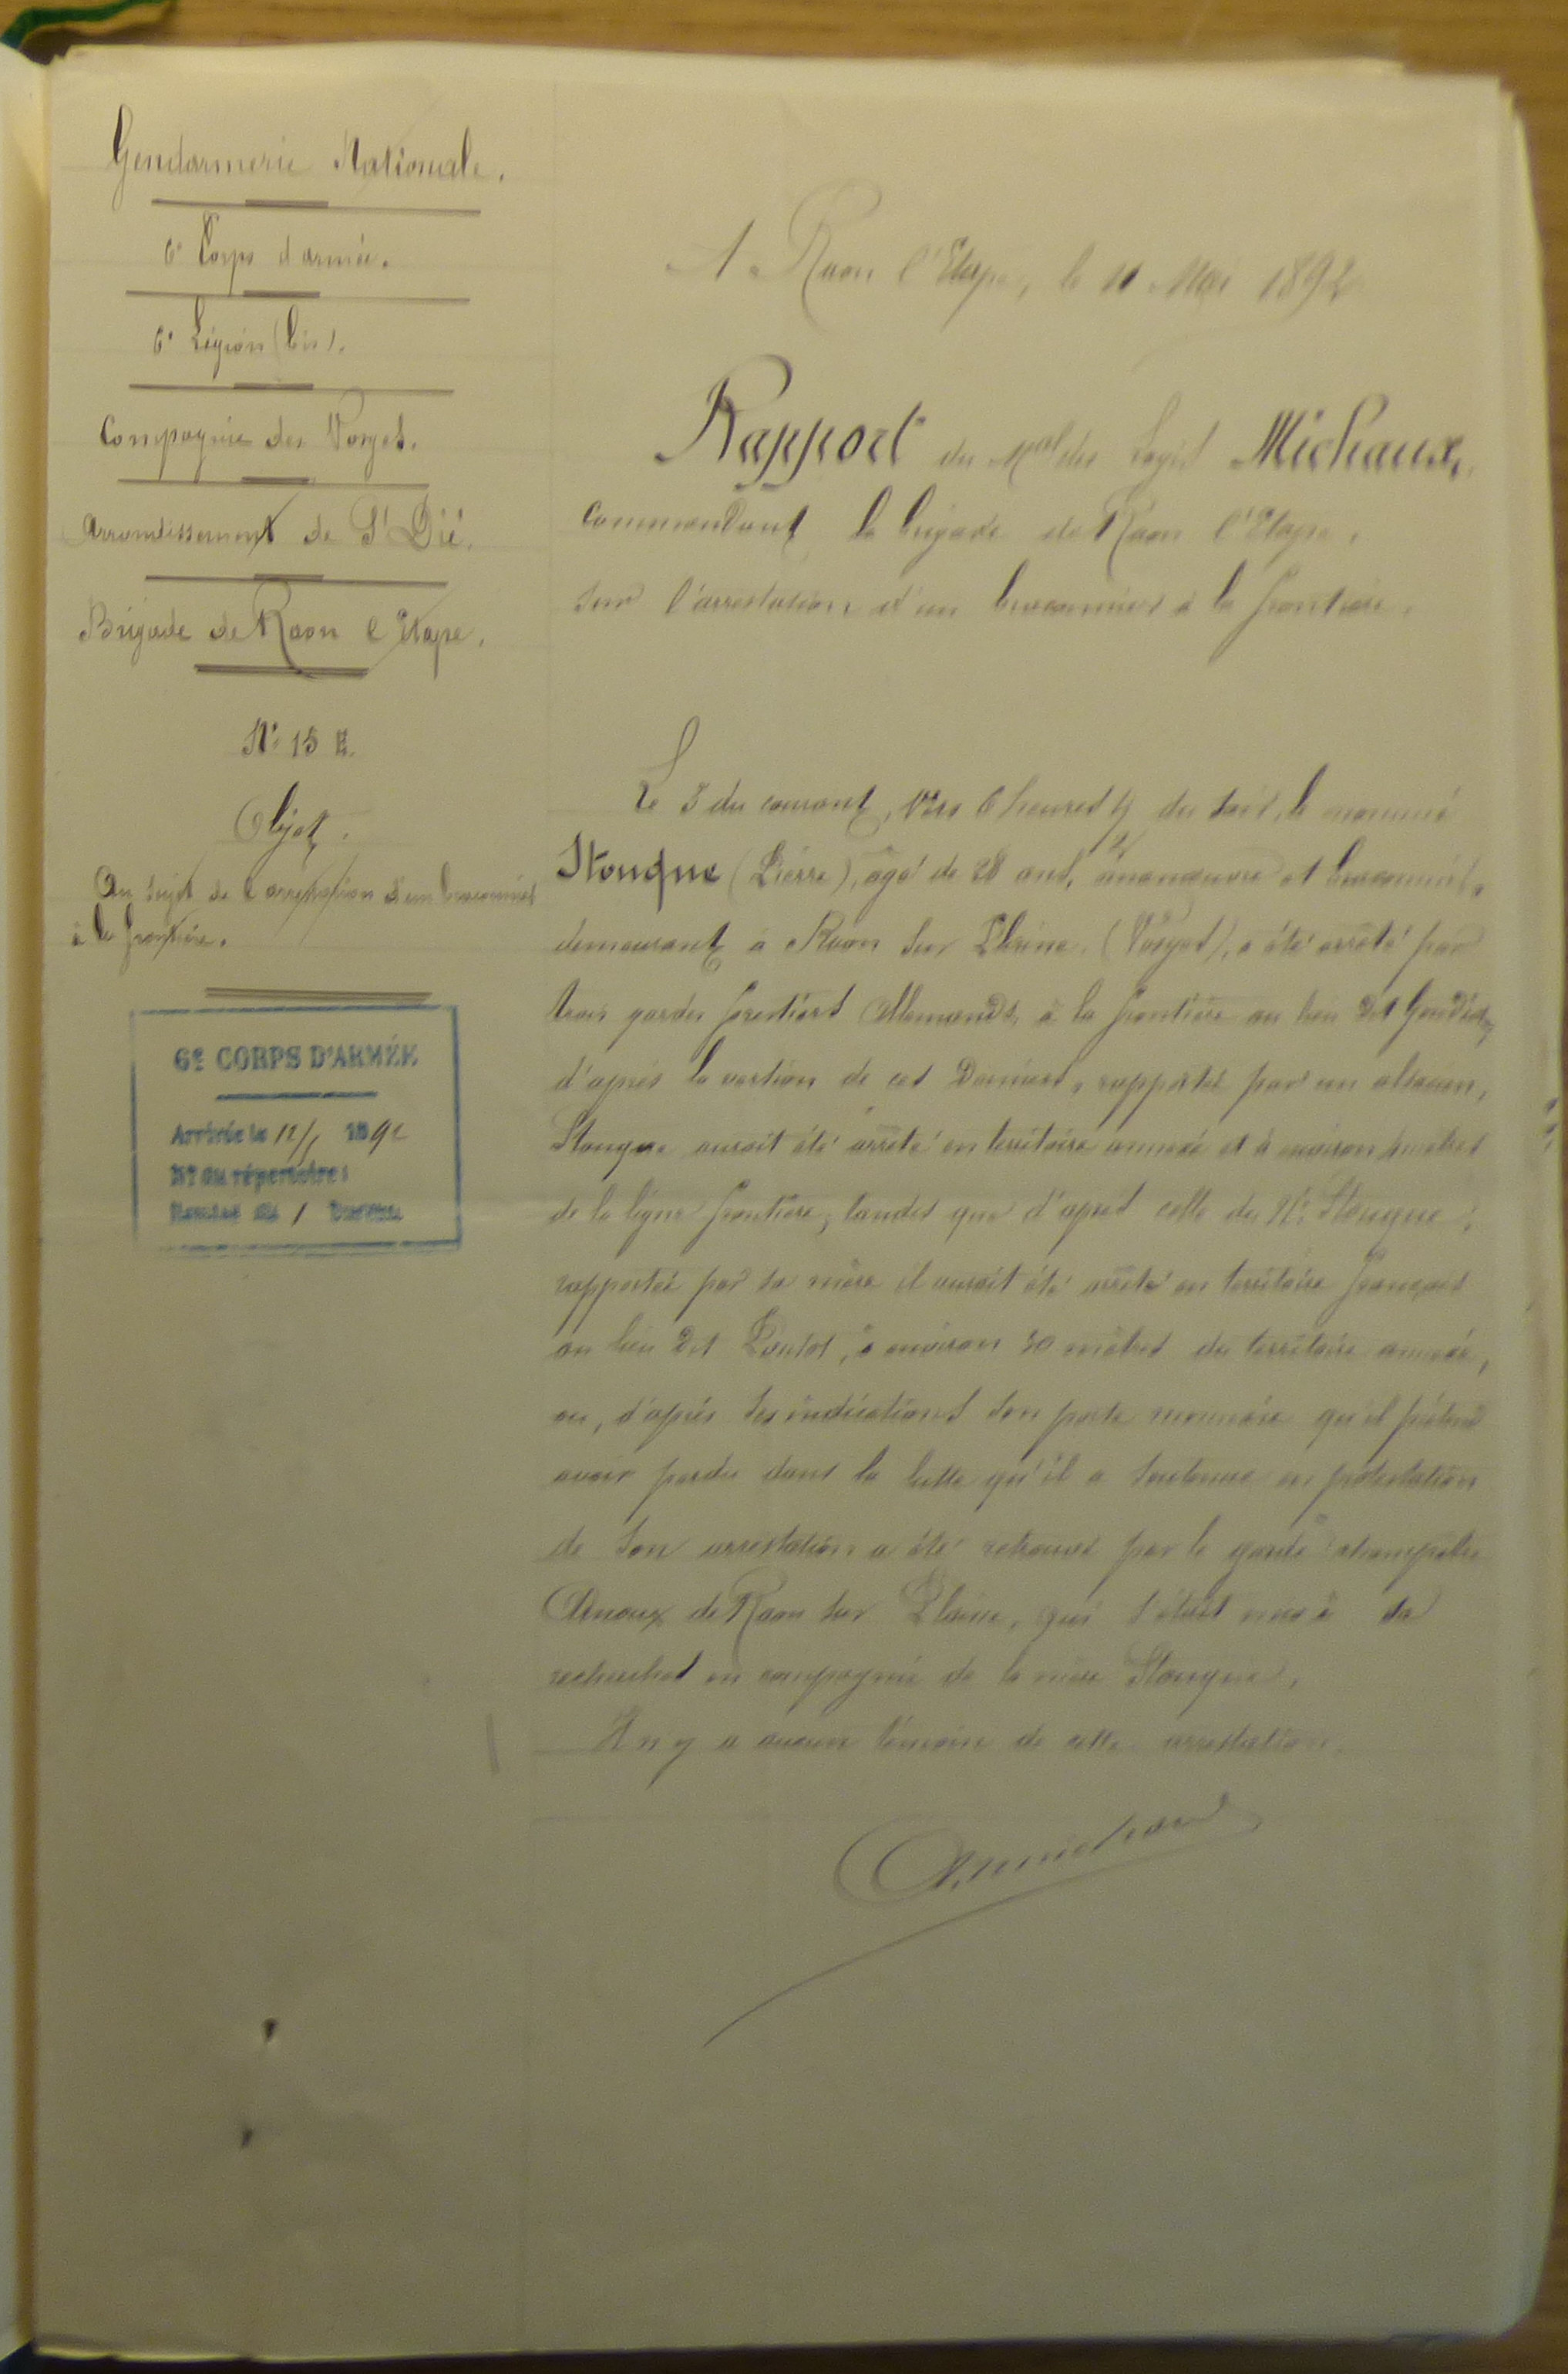 Gendarmerie Nationale.
6e Corps d'armée.
6e Légion (bis).
Compagnie des Vosges.
Arrondissement de St Dié.
Brigade de Raon l'Etape.
No 15 E.
Objet.
Au sujet de l'arrestation d'un braconnier
à la frontière.
6e CORPS D'ARMÉE
Arrivée le 12/5 1892
No du répertoire:
Bureau
A Raon l'Etape, le 11 Mai 1892
Rapport du Mal des Logis Michaux,
commandant la brigade de Raon l'Etape,
sur l'arrestation d'un braconnier à la frontière.
Le 3 du courant, vers 6 heures 1/2 du soir, le nommé
Stouque (Pierre), âgé de 28 ans, manœuvre et braconnier,
demeurant à Raon sur Plaine (Vosges), a été arrêté par
trois gardes forestiers Allemands, à la frontière au lieu dit
d'après la version de ces Derniers, rapportée par un alsacien,
Stouque aurait été arrêté en territoire annexé et à environ mètres
de la ligne frontière, tandis que d'après celle du Né Stouque,
rapportée par sa mère il aurait été arrêté en territoire français
au lieu dit à environ 30 mètres du territoire annexé,
où, d'après ses indications son porte monnaie qu'il prétend
avoir perdu dans la lutte qu'il a soutenue en protestation
de son arrestation a été retrouvé par le garde champêtre
Arnoux de Raon sur Plaine, qui s'était mis à sa
recherches en compagnie de la mère Stouque.
Il n'y a aucun témoin de cette arrestation.